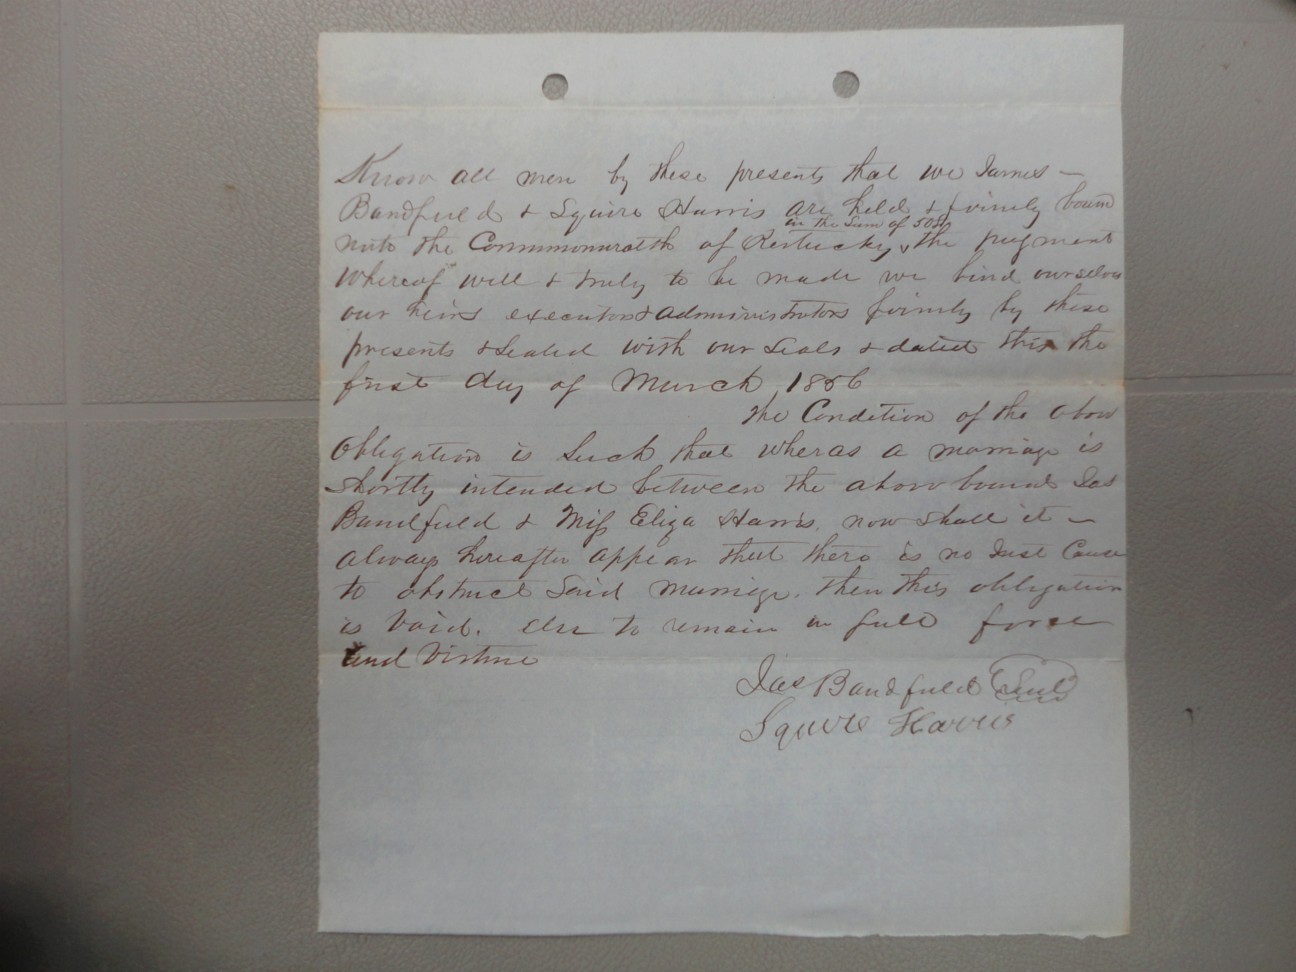 Know all men by these presents that we James
Bandfield & Squire Harris are held & firmly boun
in the Sum of 50$
unto the Commonwealth of Kentucky, the payment
whereof well & truly to be made we bind ourselves
our heirs executors & administrators firmly by these
presents & Sealed with our Seals & dated this the
first day of March 1856
The Condition of the above
obligation is Such that wheras a marriage is
shortly intended between the above bound Jas
Bandfield & Miss Eliza Harris, now shall it
always hereafter appear that there is no Just Cause
to obstruct Said marriage, then this obligation
is Void. else to remain in full force
and Virtue
Jas Bandfield Seal
Squire Harris